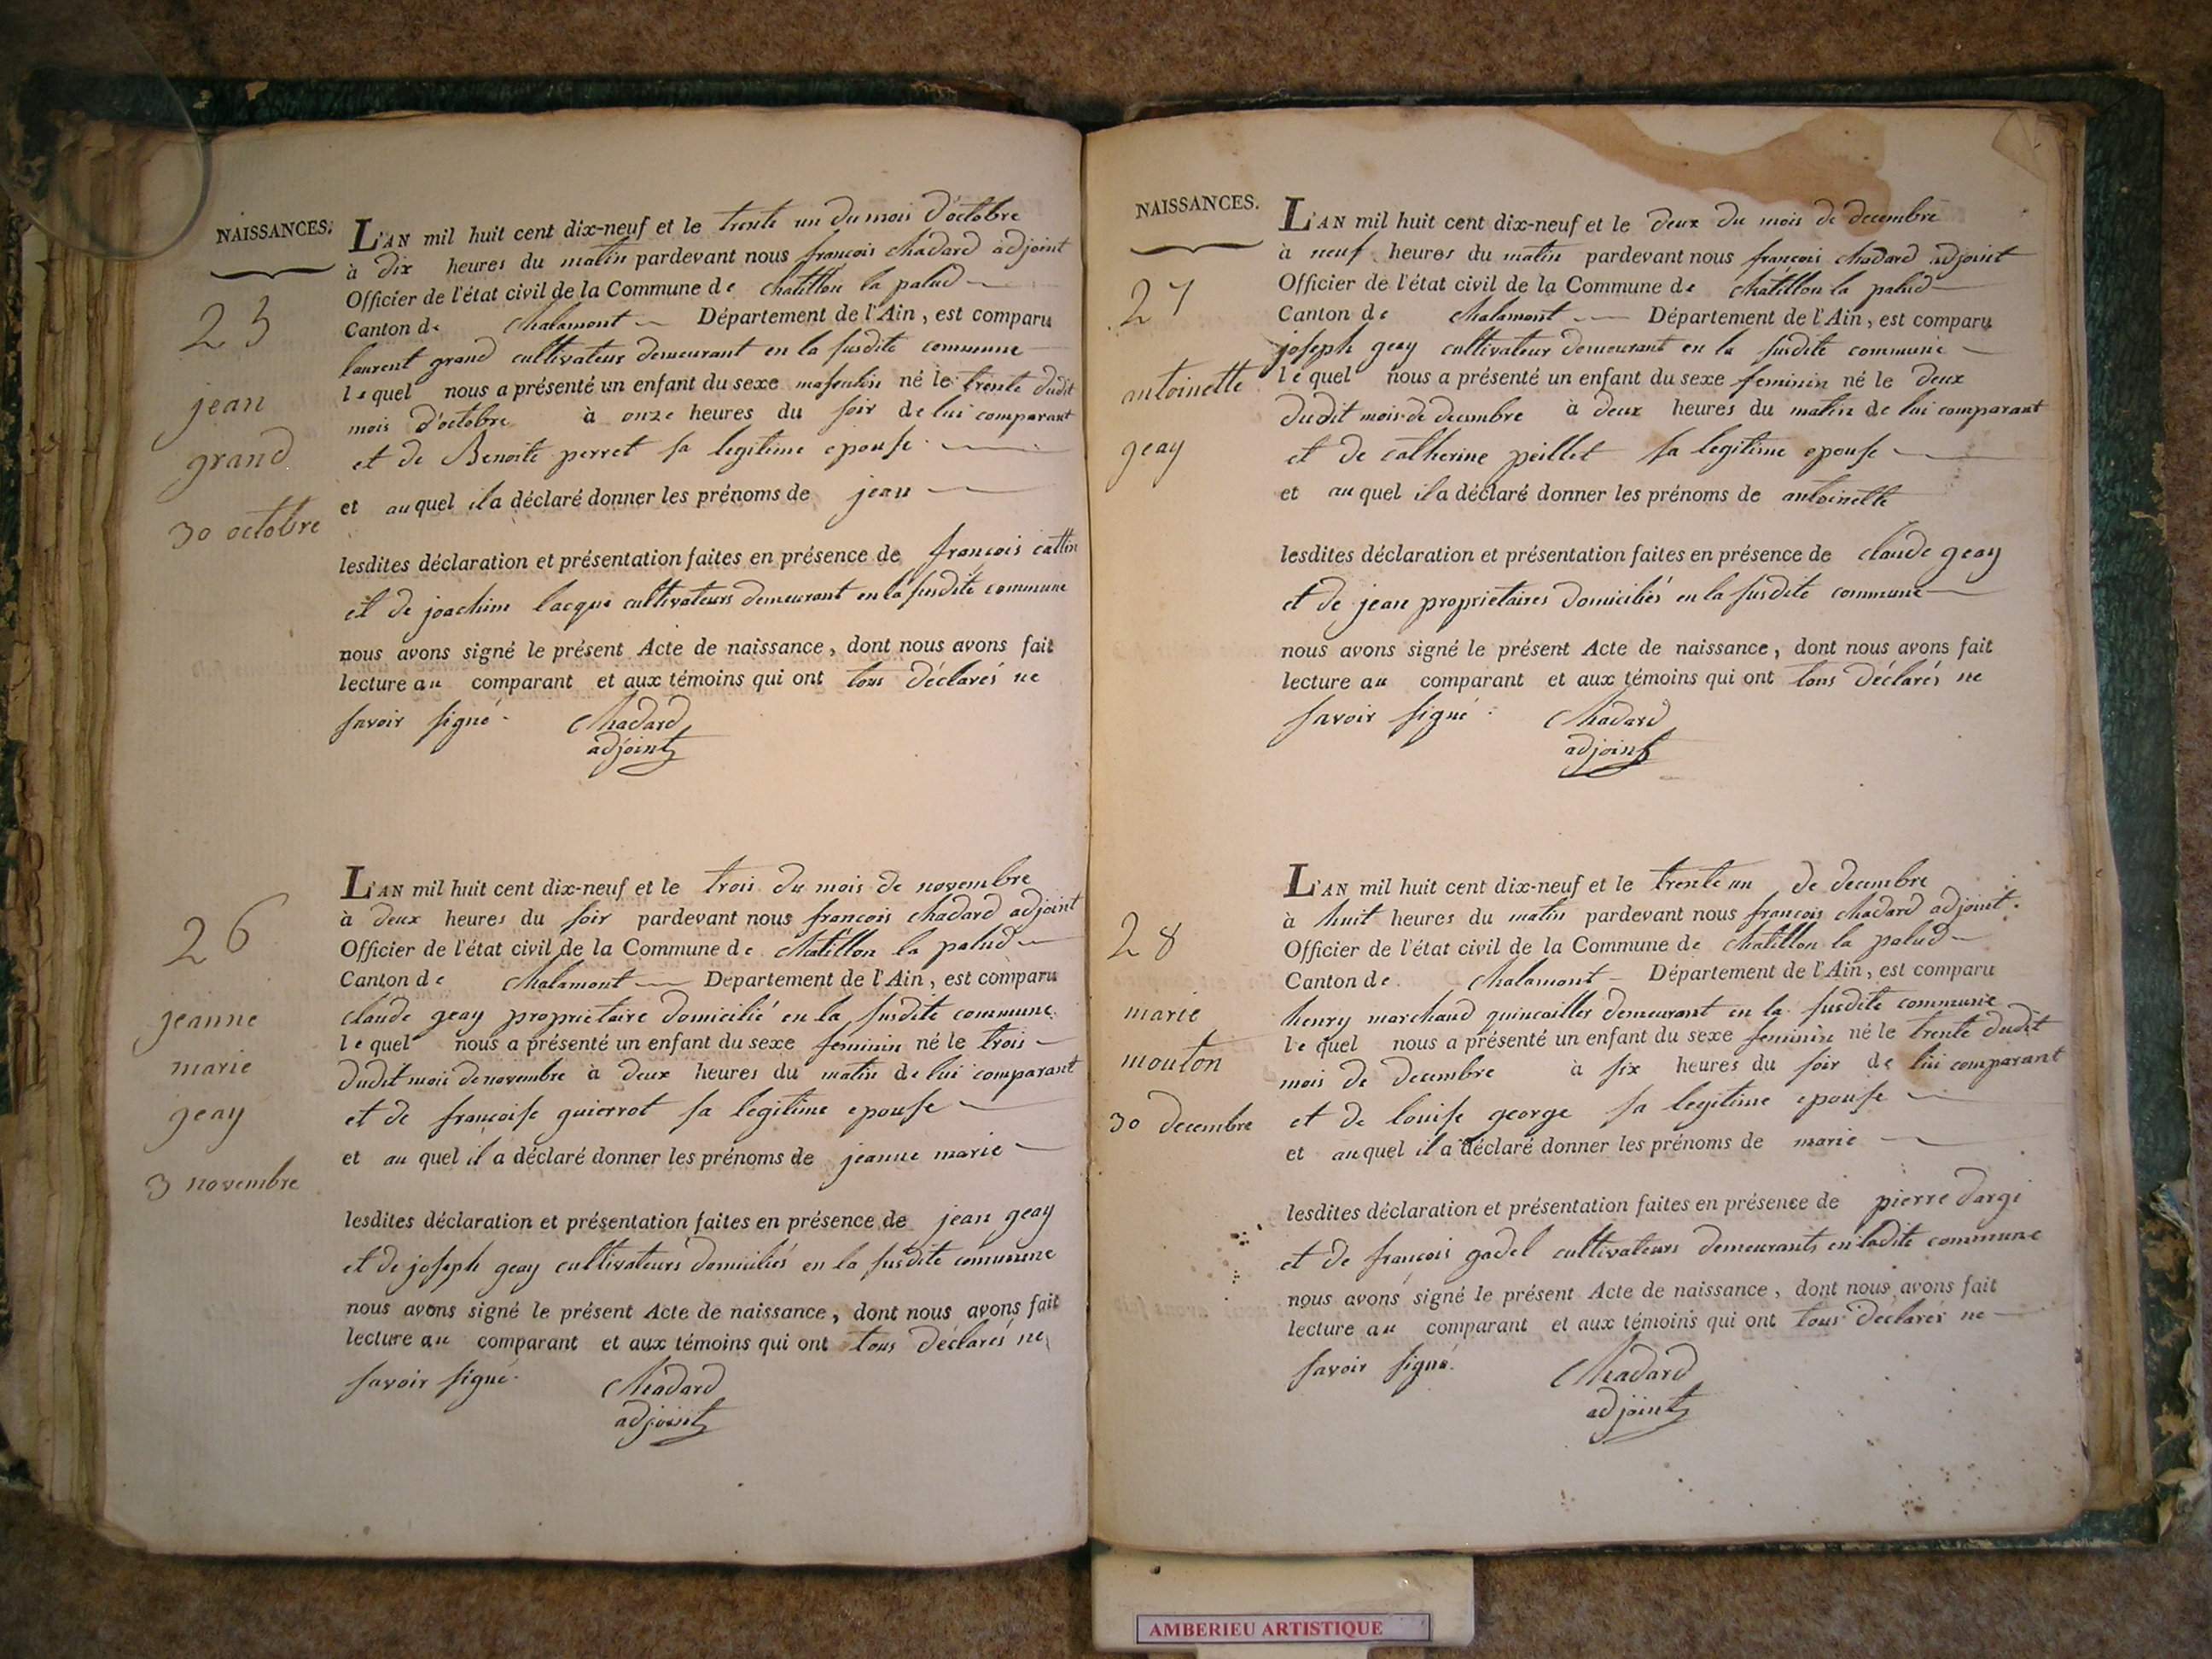 NAISSANCES.
25
jean
grand
30 octobre
L'AN mil huit cent dix-neuf et le trente un du mois d'octobre
à dix heures du matin pardevant nous françois chadard adjoint
Officier de l'état civil de la Commune de chatillon la palud
Canton de chalamont Département de l'Ain, est comparu
laurent grand cultivateur demeurant en la susdite commune
lequel nous a présenté un enfant du sexe masculin né le trente dudit
mois d'octobre à onze heures du soir de lui comparant
et de Benoite perret sa legitime epouse
et auquel il a déclaré donner les prénoms de jean
lesdites déclaration et présentation faites en présence de françois cattin
et de joachim lacque cultivateurs demeurant en la susdite commune
nous avons signé le présent Acte de naissance, dont nous avons fait
lecture au comparant et aux témoins qui ont tous déclarés ne
savoir signé.
chadard
adjoint
26
jeanne
marie
geay
3 novembre
L'AN mil huit cent dix-neuf et le trois du mois de novembre
à deux heures du soir pardevant nous françois chadard adjoint
Officier de l'état civil de la Commune de chatillon la palud
Canton de chalamont Département de l'Ain, est comparu
claude geay proprietaire domicilié en la susdite commune
lequel nous a présenté un enfant du sexe feminin né le trois
dudit mois de novembre à deux heures du matin de lui comparant
et de françoise guierrot sa legitime epouse
et au quel il a déclaré donner les prénoms de jeanne marie
lesdites déclaration et présentation faites en présence de jean geay
et de joseph geay cultivateurs domiciliés en la susdite commune
nous avons signé le présent Acte de naissance, dont nous avons fait
lecture au comparant et aux témoins qui ont tous déclarés ne
savoir signé.
chadard
adjoint
NAISSANCES.
27
antoinette
geay
L'AN mil huit cent dix-neuf et le deux du mois de decembre
à neuf heures du matin pardevant nous françois chadard adjoint
Officier de l'état civil de la Commune de chatillon la palud
Canton de chalamont Département de l'Ain, est comparu
joseph geay cultivateur demeurant en la susdite commune
lequel nous a présenté un enfant du sexe feminin né le deux
dudit mois de decembre à deux heures du matin de lui comparant
et de catherine peillet sa legitime epouse
et auquel il a déclaré donner les prénoms de antoinette
lesdites déclaration et présentation faites en présence de claude geay
et de jean proprietaires domiciliés en la susdite commune
nous avons signé le présent Acte de naissance, dont nous avons fait
lecture au comparant et aux témoins qui ont tous déclarés ne
savoir signé.
chadard
adjoint
28
marie
mouton
30 decembre
L'AN mil huit cent dix-neuf et le trente un de decembre
à huit heures du matin pardevant nous françois chadard adjoint
Officier de l'état civil de la Commune de chatillon la palud
Canton de chalamont Département de l'Ain, est comparu
henry marchand quincailler demeurant en la susdite commune
lequel nous a présenté un enfant du sexe feminin né le trente dudit
mois de decembre à six heures du soir de lui comparant
et de louise george sa legitime epouse
et auquel il a déclaré donner les prénoms de marie
lesdites déclaration et présentation faites en présence de pierre dargi
et de françois gadel cultivateurs demeurants en ladite commune
nous avons signé le présent Acte de naissance, dont nous avons fait
lecture au comparant et aux témoins qui ont tous déclarés ne
savoir signé.
chadard
adjoint
AMBERIEU ARTISTIQUE